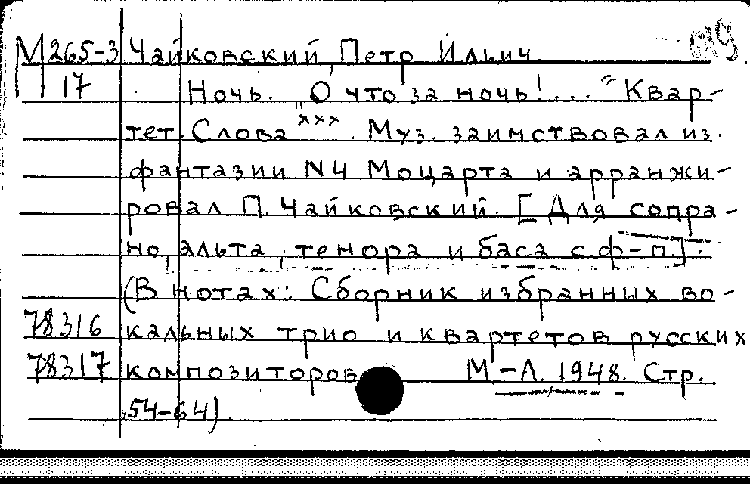 М265-3 Чайковский, Петр Ильич
17 Ночь. „О что за ночь!..." Квар-
тет. Слова ***. Муз. заимствовал из
фантазии N4 Моцарта и арранжи-
ровал П. Чайковский. [Для сопра-
но, альта, тенора и баса с ф-п.].
(В нотах: Сборник избранных во-
78316 кальных трио и квартетов русских
78317 композиторов М-Л. 1948. Стр.
54-64).